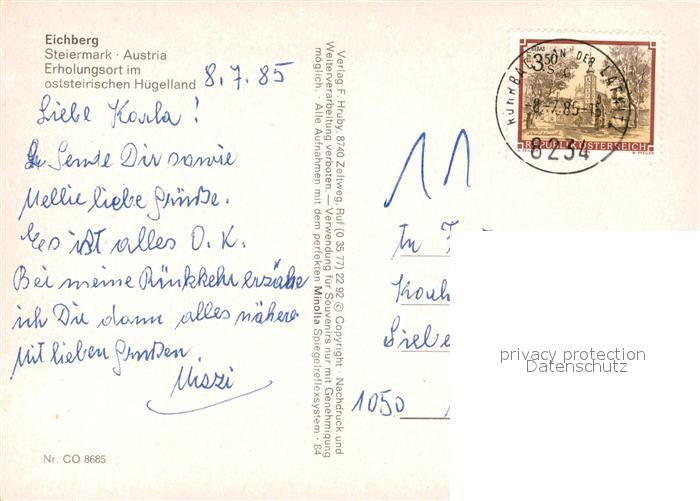 Eichberg
Steiermark · Austria
Erholungsort im
oststeirischen Hügelland
8.7.85
Liebe Karla!
Sende Dir sowie
Nellie liebe Grüße.
Es ist alles O.K.
Bei meine Rückkehr erzähe
ich Dir dann alles nähere
Mit lieben Grußen.
Nr. CO 8685
Verlag F. Hruby, 8740 Zeltweg, Ruf (0 35 77) 22 92 © Copyright · Nachdruck und
Weiterverarbeitung verboten. — Verwendung für Souvenirs nur mit Genehmigung
möglich. · Alle Aufnahmen mit dem perfekten Minolta Spiegelreflexsystem · 84
3.50
REPUBLIK ÖSTERREICH
ROHRBACH AN DER LAFNITZ
8.-7.85
8234
1050
privacy protection
Datenschutz